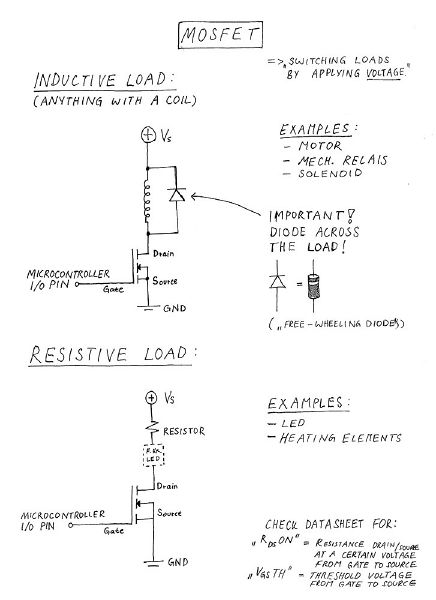 MOSFET
=> „SWITCHING LOADS
BY APPLYING VOLTAGE."
INDUCTIVE LOAD:
(ANYTHING WITH A COIL)
Vs
EXAMPLES:
- MOTOR
- MECH. RELAIS
- SOLENOID
IMPORTANT!
DIODE ACROSS
THE LOAD!
Drain
MICROCONTROLLER
I/O PIN
Source
Gate
=
GND
(„FREE-WHEELING DIODES)
RESISTIVE LOAD:
Vs
EXAMPLES:
- LED
- HEATING ELEMENTS
RESISTOR
F.EX.
LED
Drain
MICROCONTROLLER
I/O PIN
Source
Gate
GND
CHECK DATASHEET FOR:
„RDSON" = RESISTANCE DRAIN/SOURCE
AT A CERTAIN VOLTAGE
FROM GATE TO SOURCE
„VGSTH" = THRESHOLD VOLTAGE
FROM GATE TO SOURCE